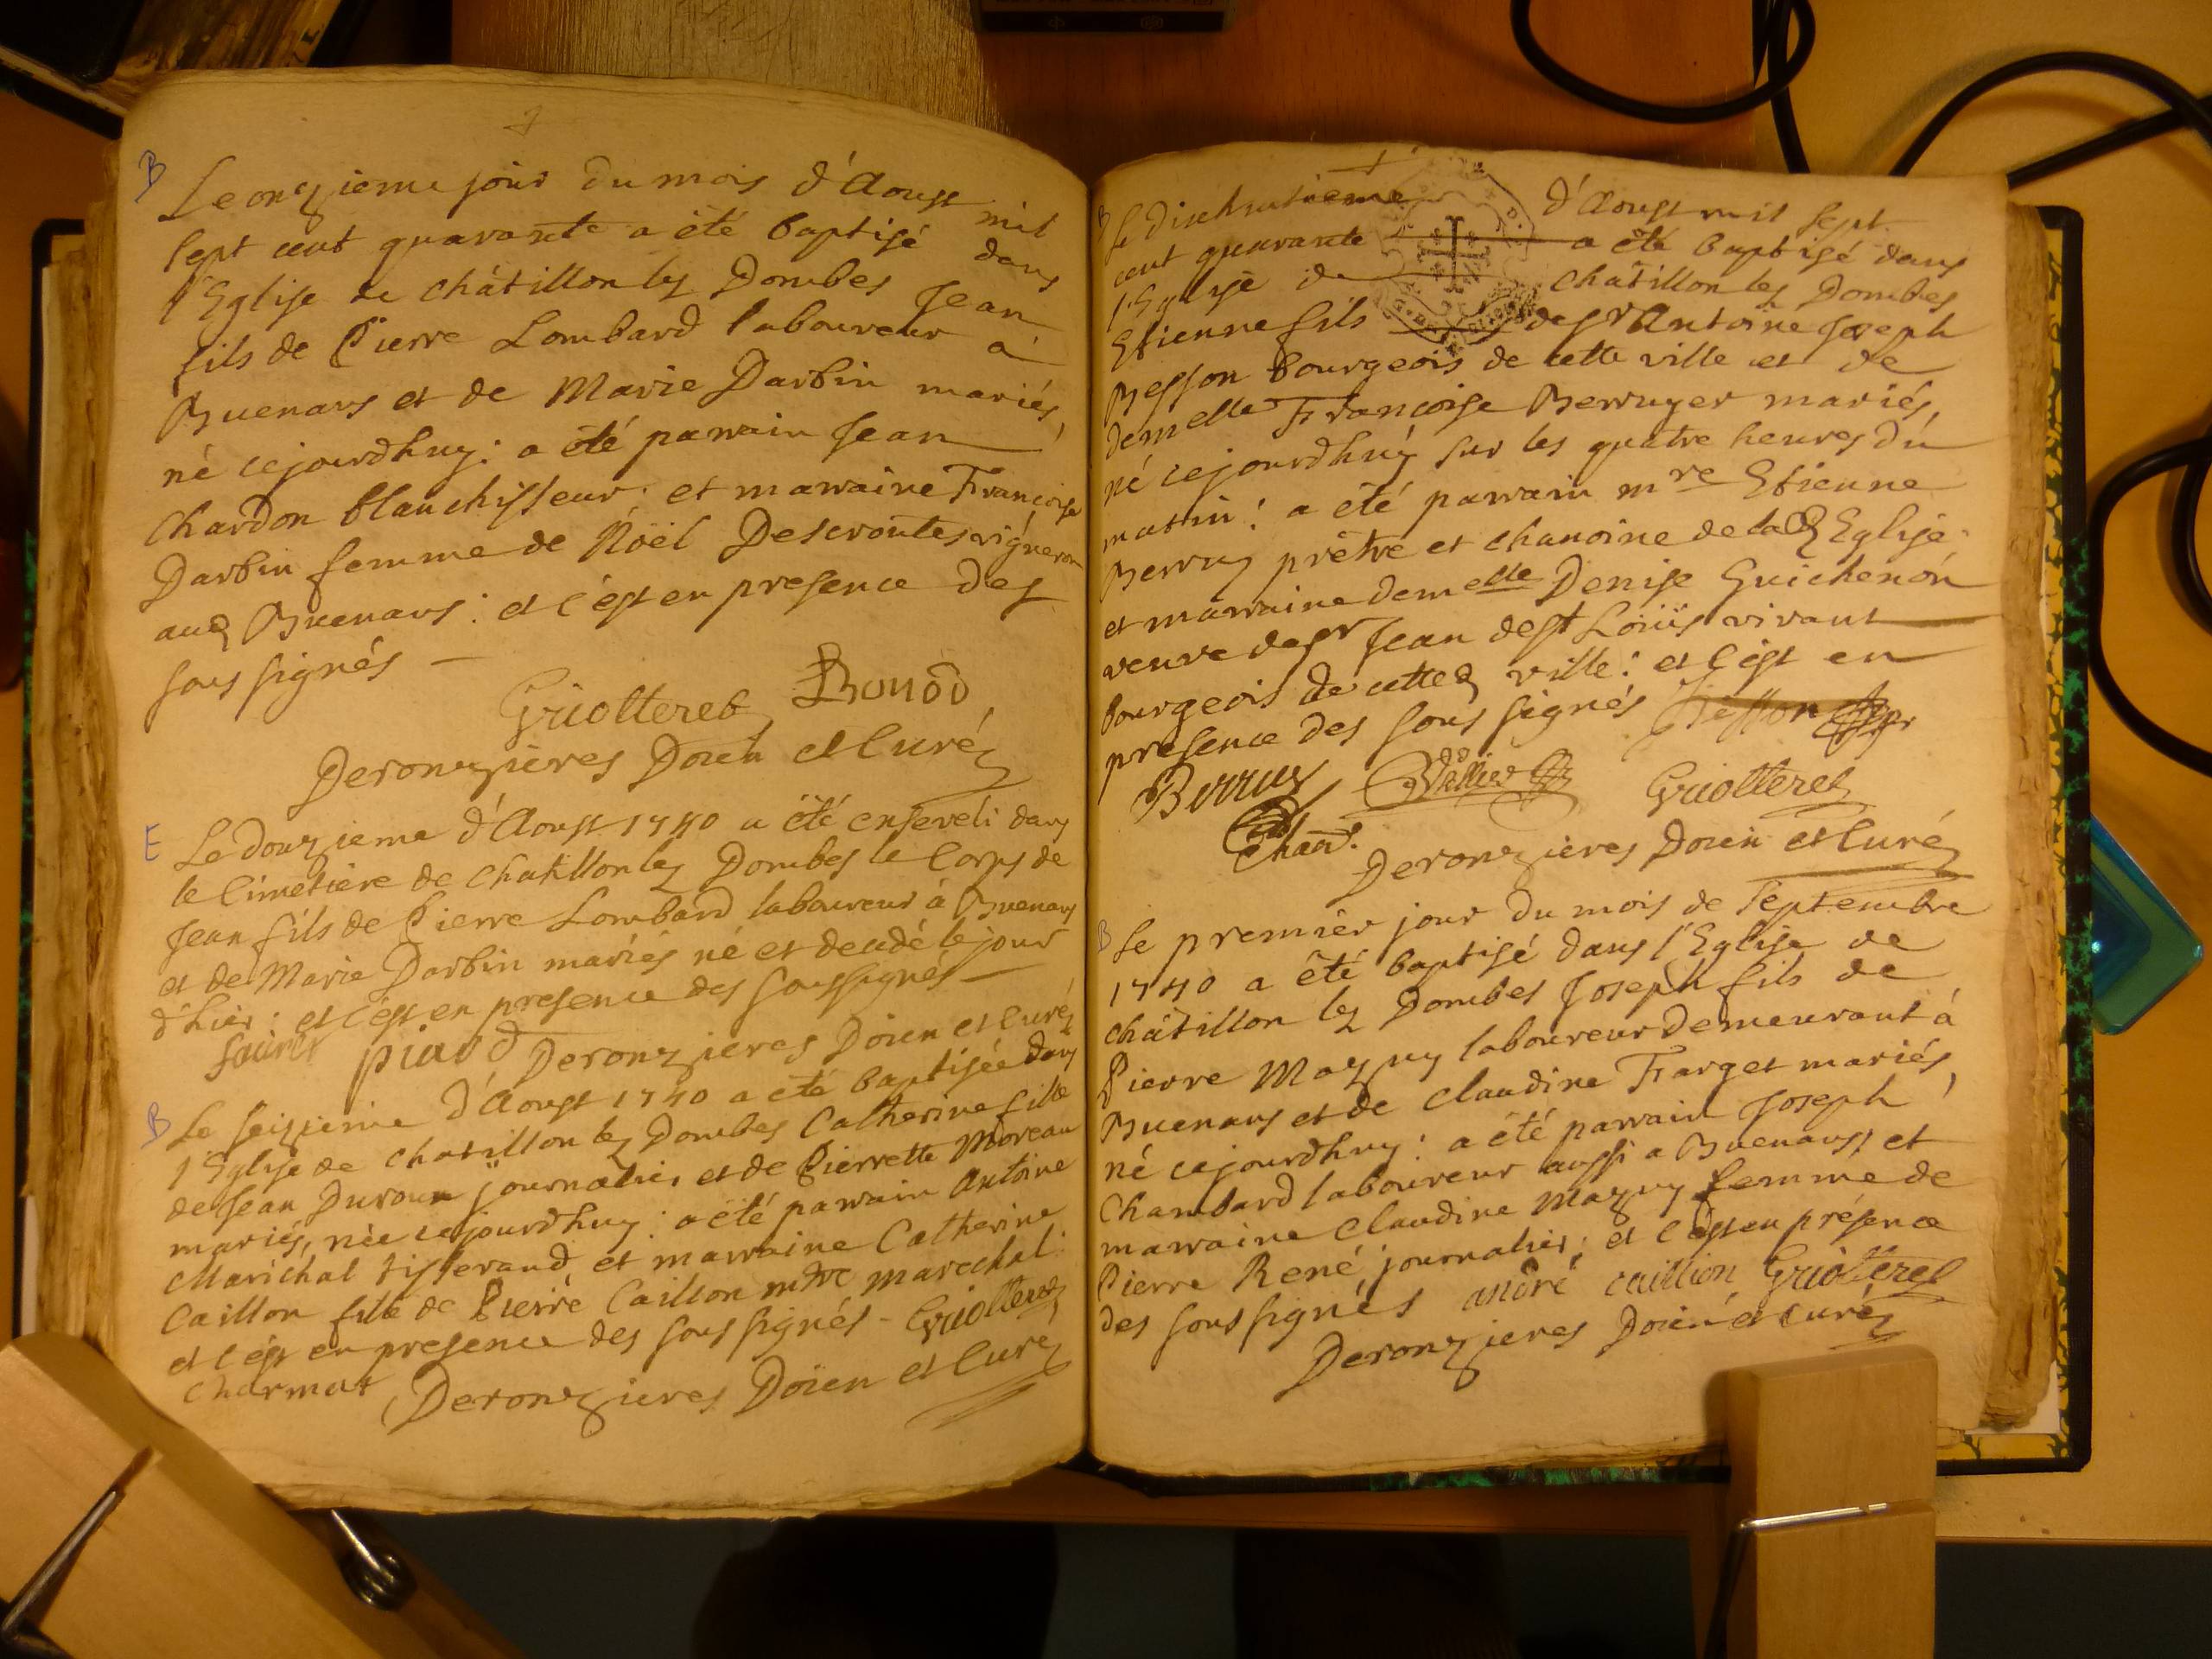 B
Le onzieme jour du mois d'Aoust mil
sept cent quarante a été baptisé dans
l'Eglise de châtillon les Dombes Jean
fils de Pierre Lombard laboureur à
Buenans et de Marie Darbin mariés,
né cejourdhuy : a été parrain Jean
Chardon blanchisseur, et marraine Françoise
Darbin femme de Nöel Descroutes vigneron
aud Buenans : et c'est en presence des
sous signés —
Griotteret Bonod
Deronzieres Doien et Curé
E
Le douzieme d'Aoust 1740 a été enseveli dans
le Cimetiere de Chatillon les Dombes le Corps de
Jean fils de Pierre Lombard laboureur à Buenans
et de Marie Darbin mariés né et decedé le jour
d'hier : et c'est en presence des soussignés —
piard Deronzieres Doien et Curé
B
Le seizieme d'Aoust 1740 a été baptisée dans
l'Eglise de chatillon les Dombes Catherine fille
de Jean Duroux journalier et de Pierrette Moreau
mariés, née cejourdhuy : a été parrain Antoine
Marichal tisserand, et marraine Catherine
Caillon fille de Pierre Caillon mtre marechal :
et c'est en presence des sous signés - Griotteret
Charmat Deronzieres Doïen et Curé
B
Le dixhuitieme d'Aoust mil sept
cent quarante a été baptisé dans
l'Eglise de châtillon les Dombes
Etienne fils de sr Antoine Joseph
Besson bourgeois de cette ville et de
demelle Françoise Berruyer mariés,
né cejourdhuy sur les quatre heures du
matin : a été parrain mre Etienne
Berruy prêtre et chanoine de lad Eglise
et marraine demelle Denise Guichenon
veuve de sr Jean de st Loüis vivant
bourgeois de cetted ville : et c'est en
presence des sous signés Besson
Berruy Griotteret
Chan.
Deronzieres Doien et Curé
B
Le premier jour du mois de Septembre
1740 a été baptisé dans l'Eglise de
châtillon les Dombes Joseph fils de
Pierre Mazuy laboureur demeurant à
Buenans et de Claudine Farget mariés,
né cejourdhuy : a été parrain Joseph
Chambard laboureur aussi a Buenans, et
marraine Claudine Mazuy femme de
Pierre René, journalier ; et c'est en présence
des sous signés andré caillion Griotteret
Deronzieres Doien et curé